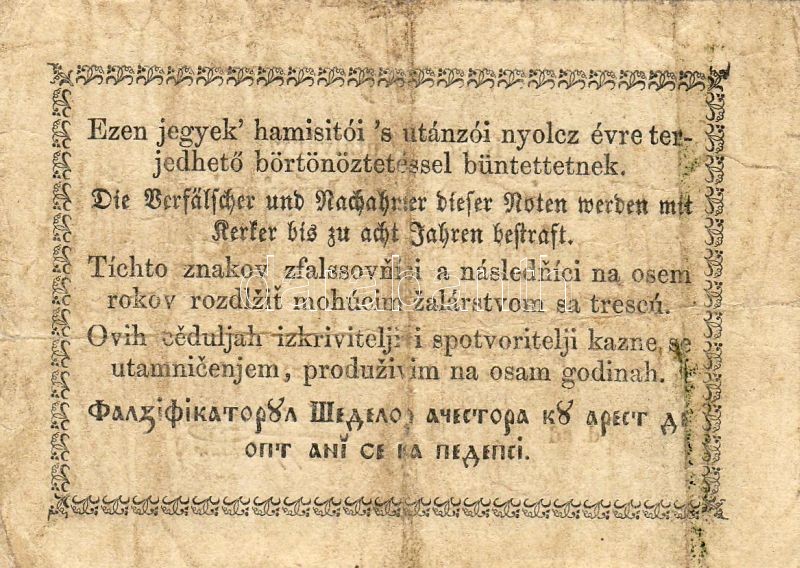 Ezen jegyek’ hamisitói ’s utánzói nyolcz évre ter-
jedhető börtönöztetéssel büntettetnek.
Die Verfälscher und Nachahmer dieser Noten werden mit
Kerker bis zu acht Jahren bestraft.
Tíchto znakov zfalssovňici a následňíci na osem
rokov rozdĺžiť mohúcim žalárstvom sa trescú.
Ovih cěduljah izkrivitelji i spotvoritelji kazne se
utamničenjem, produživim na osam godinah.
Фалѯіфікаторꙋл Шеделор ачестора кꙋ арест де
опт анĭ се ва педепсі.
darabanth